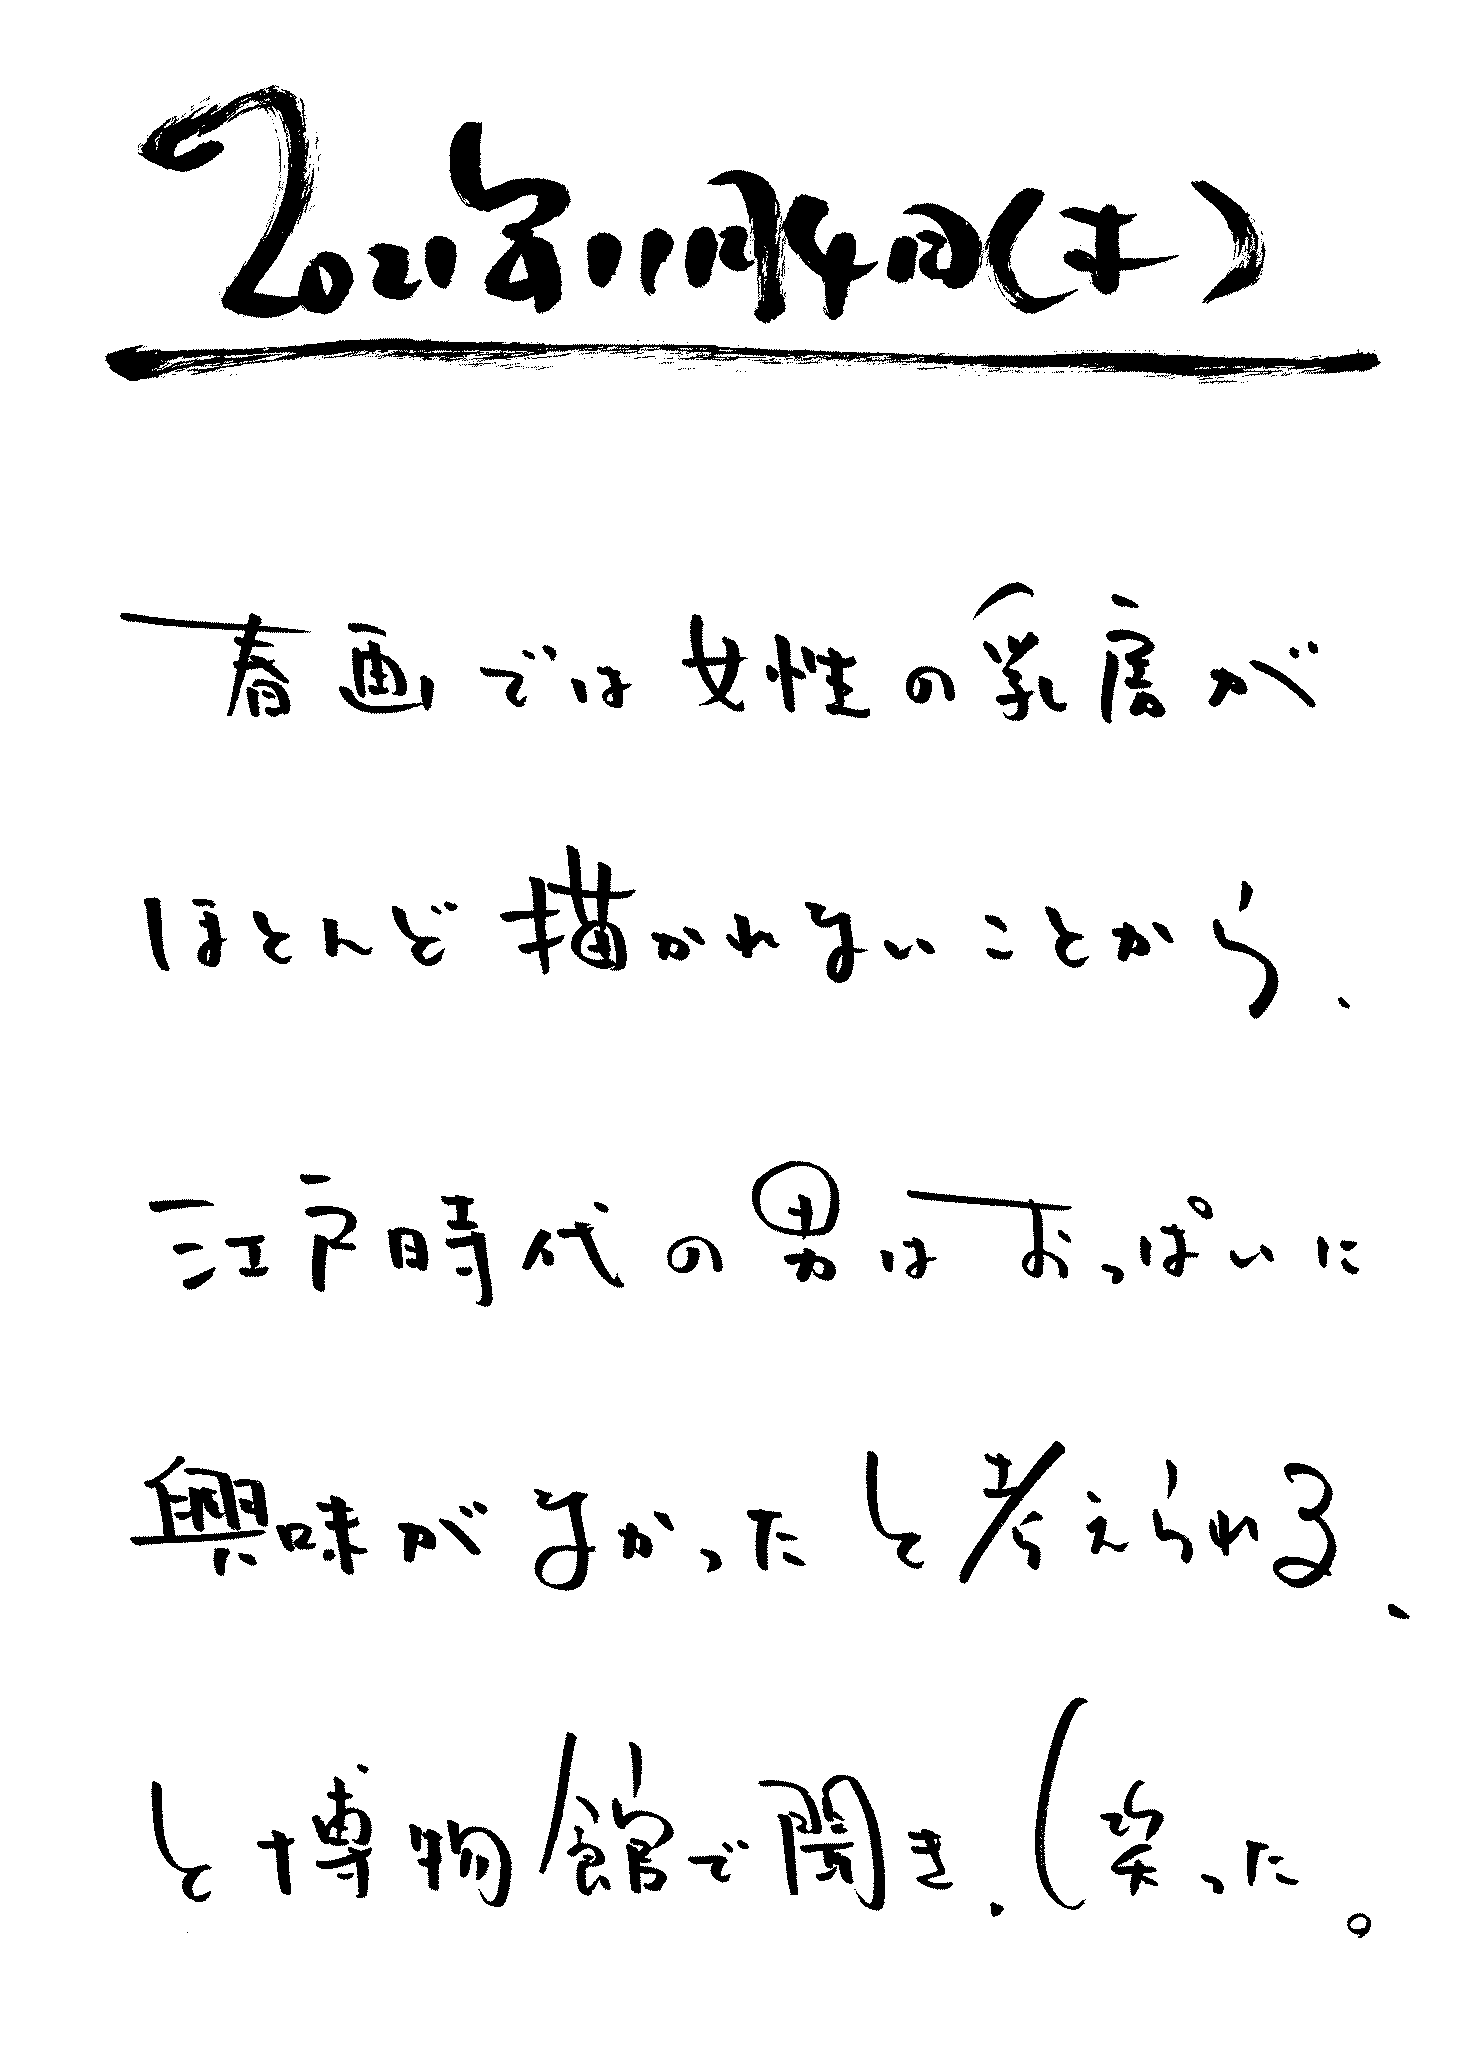 2021年11月4日(木)
春画では女性の乳房が
ほとんど描かれないことから、
江戸時代の男はおっぱいに
興味がなかったと考えられる、
と博物館で聞き、(笑った。